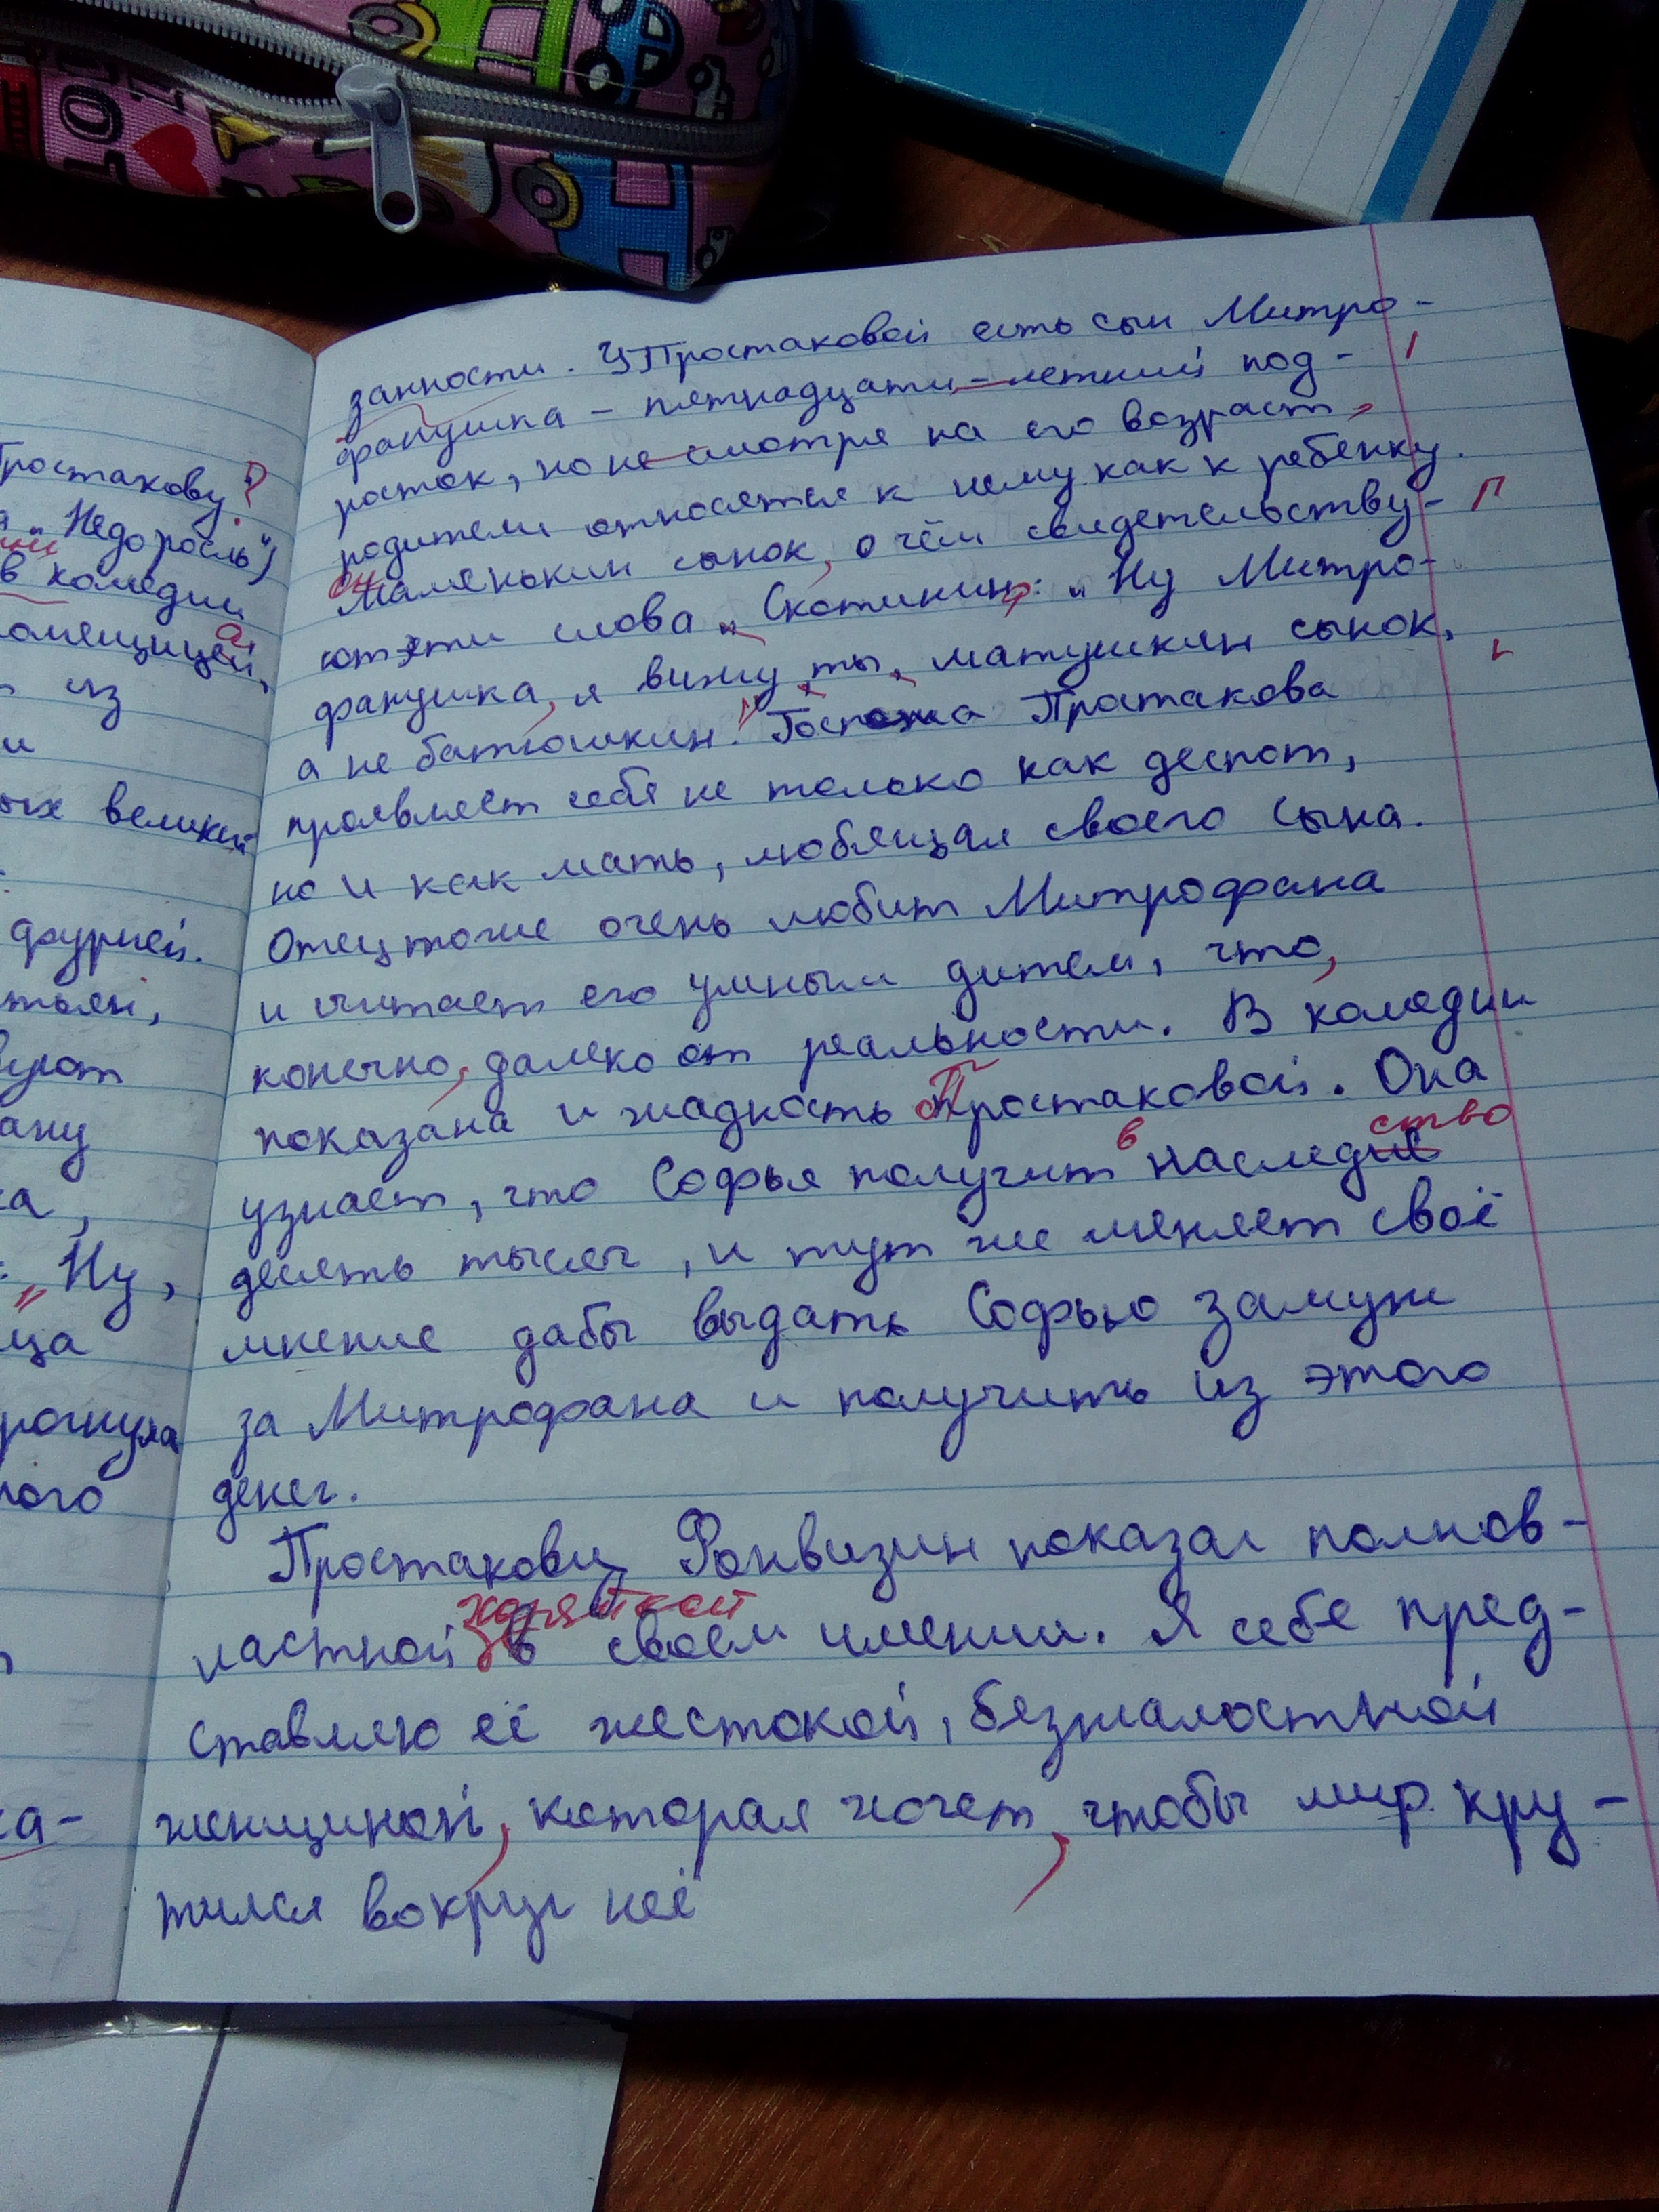 Простакову?
„Недоросль")
в комедии
помещицей,
из
и
ых великой
фурией.
ану
ка,
: „Ну,
ца
рогнула
ного
ка-
занности. У Простаковой есть сын Митро-
фанушка – пятнадцати-летний под-
росток, но не смотря на его возраст,
родители относятся к нему как к ребёнку.
он
Маменькин сынок, о чём свидетельству-
ют эти слова „Скотинин: „Ну Митро-
фанушка, я вижу, ты, матушкин сынок,
а не батюшкин." Госпожа Простакова
проявляет себя не только как деспот,
но и как мать, любящая своего сына.
Отец тоже очень любит Митрофана
и считает его умным дитём, что,
конечно, далеко от реальности. В комедии
показана и жадность Простаковой. Она
ство
узнает, что Софья получит в наследие
десять тысяч, и тут же меняет своё
мнение дабы выдать Софью замуж
за Митрофана и получить из этого
денег.
Простакову Фонвизин показал полнов-
хозяйкой
ластной в своём имении. Я себе пред-
ставляю её жестокой, безжалостной
женщиной, которая хочет, чтобы мир кру-
тился вокруг неё